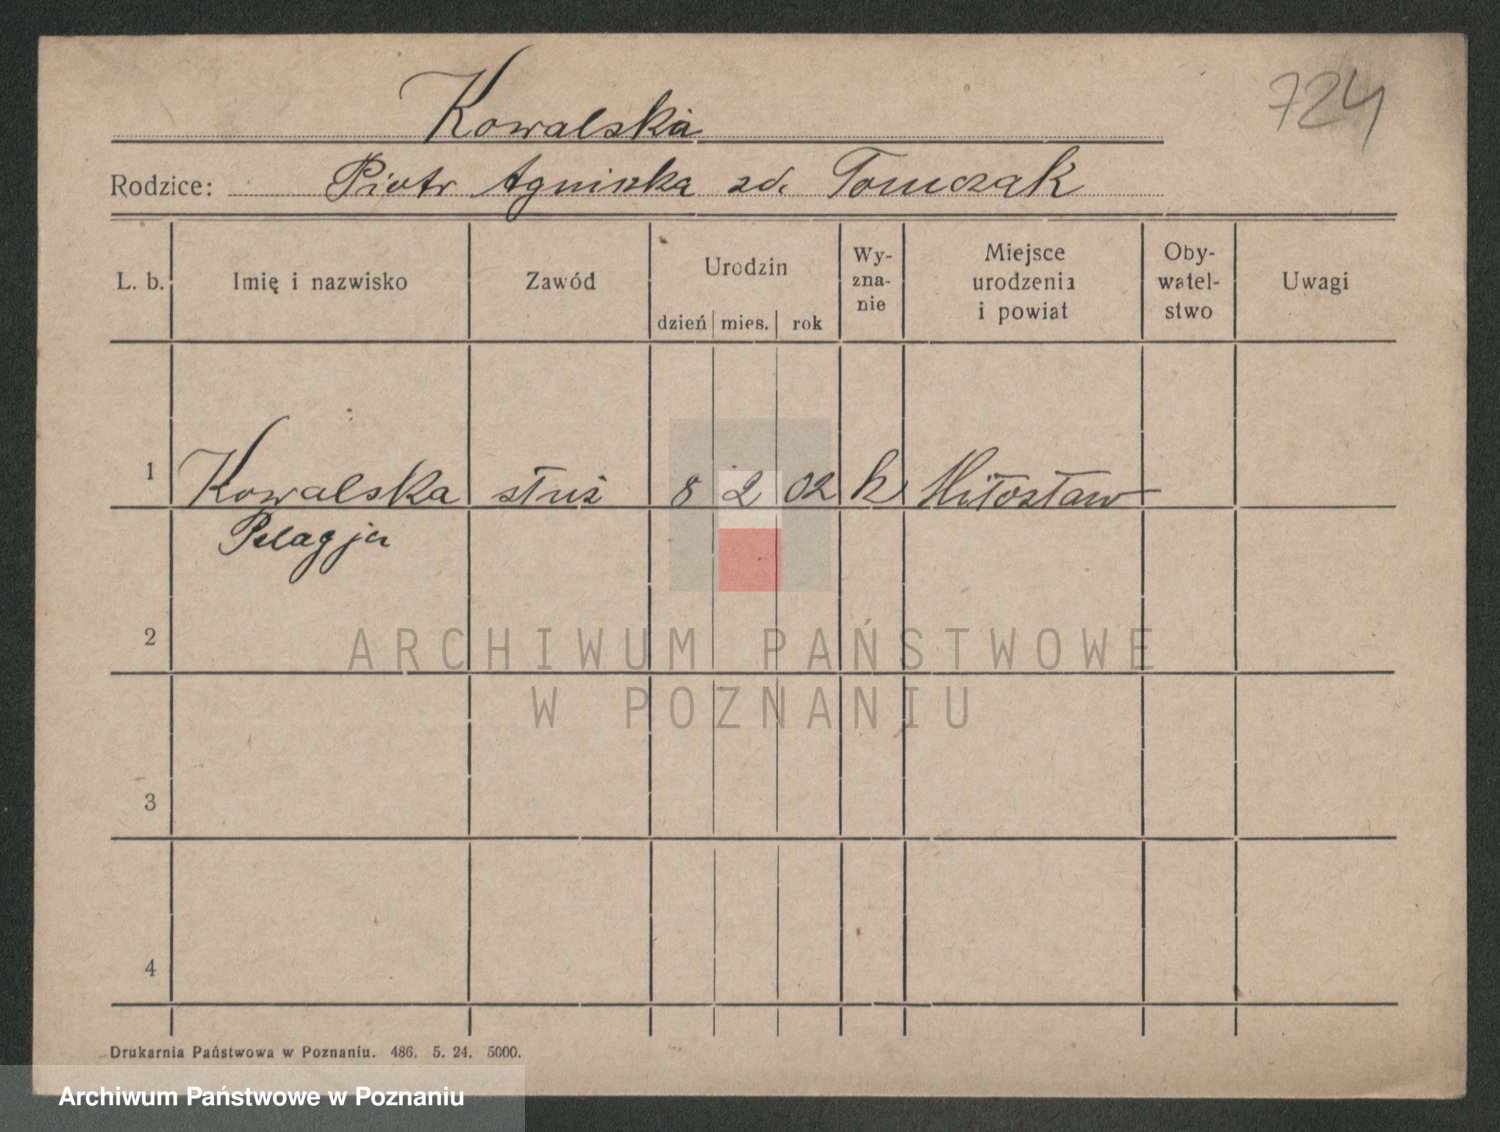 724
Kowalska
Rodzice: Piotr Agnieszka zd. Tomczak
L. b. Imię i nazwisko Zawód Urodzin dzień mies. rok Wy-zna-nie Miejsce urodzenia i powiat Oby-watel-stwo Uwagi
1 Kowalska służ 8 2 02 k Miłosław
Pelagja
2
ARCHIWUM PAŃSTWOWE
W POZNANIU
3
4
Drukarnia Państwowa w Poznaniu. 486. 5. 24. 5000.
Archiwum Państwowe w Poznaniu